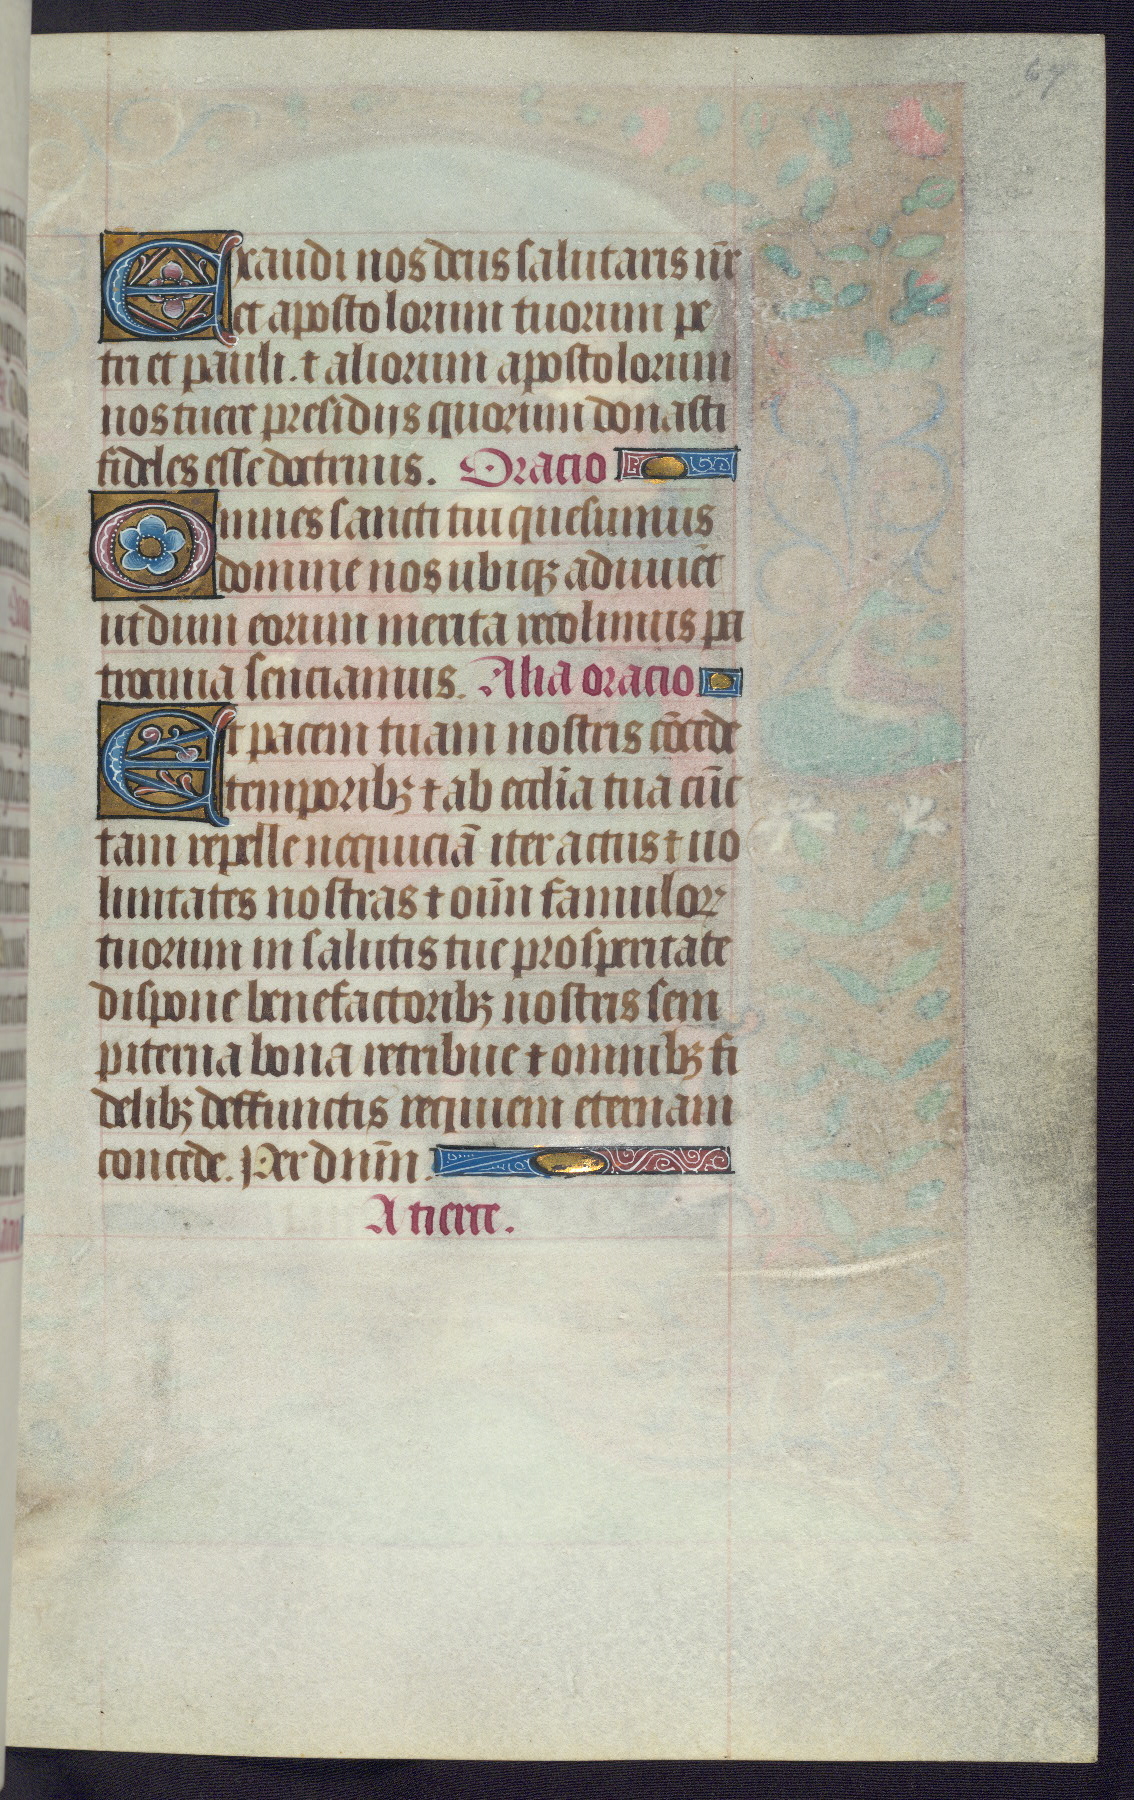 67
Exaudi nos deus salutaris nr̄
et apostolorum tuorum pe
tri et pauli. ⁊ aliorum apostolorum
nos tuere presidijs quorum donasti
fideles esse doctrinis. Oracio
Omnes sancti tui quesumus
domine nos ubiqꝫ adiuuēt
ut dum eorum merita recolimus pa
trocinia senciamus. Alia oracio
Et pacem tuam nostris cōcede
temporibꝫ ⁊ ab eccl̄ia tua cūc
tam repelle nequiciā iter actus ⁊ uo
luntates nostras ⁊ oīm famuloꝝ
tuorum in salutis tue prosperitate
dispone benefactoribꝫ nostris sem
piterna bona retribue ⁊ omnibꝫ fi
delibꝫ deffunctis requiem eternam
concede. Per dnm̄.
A tierce.